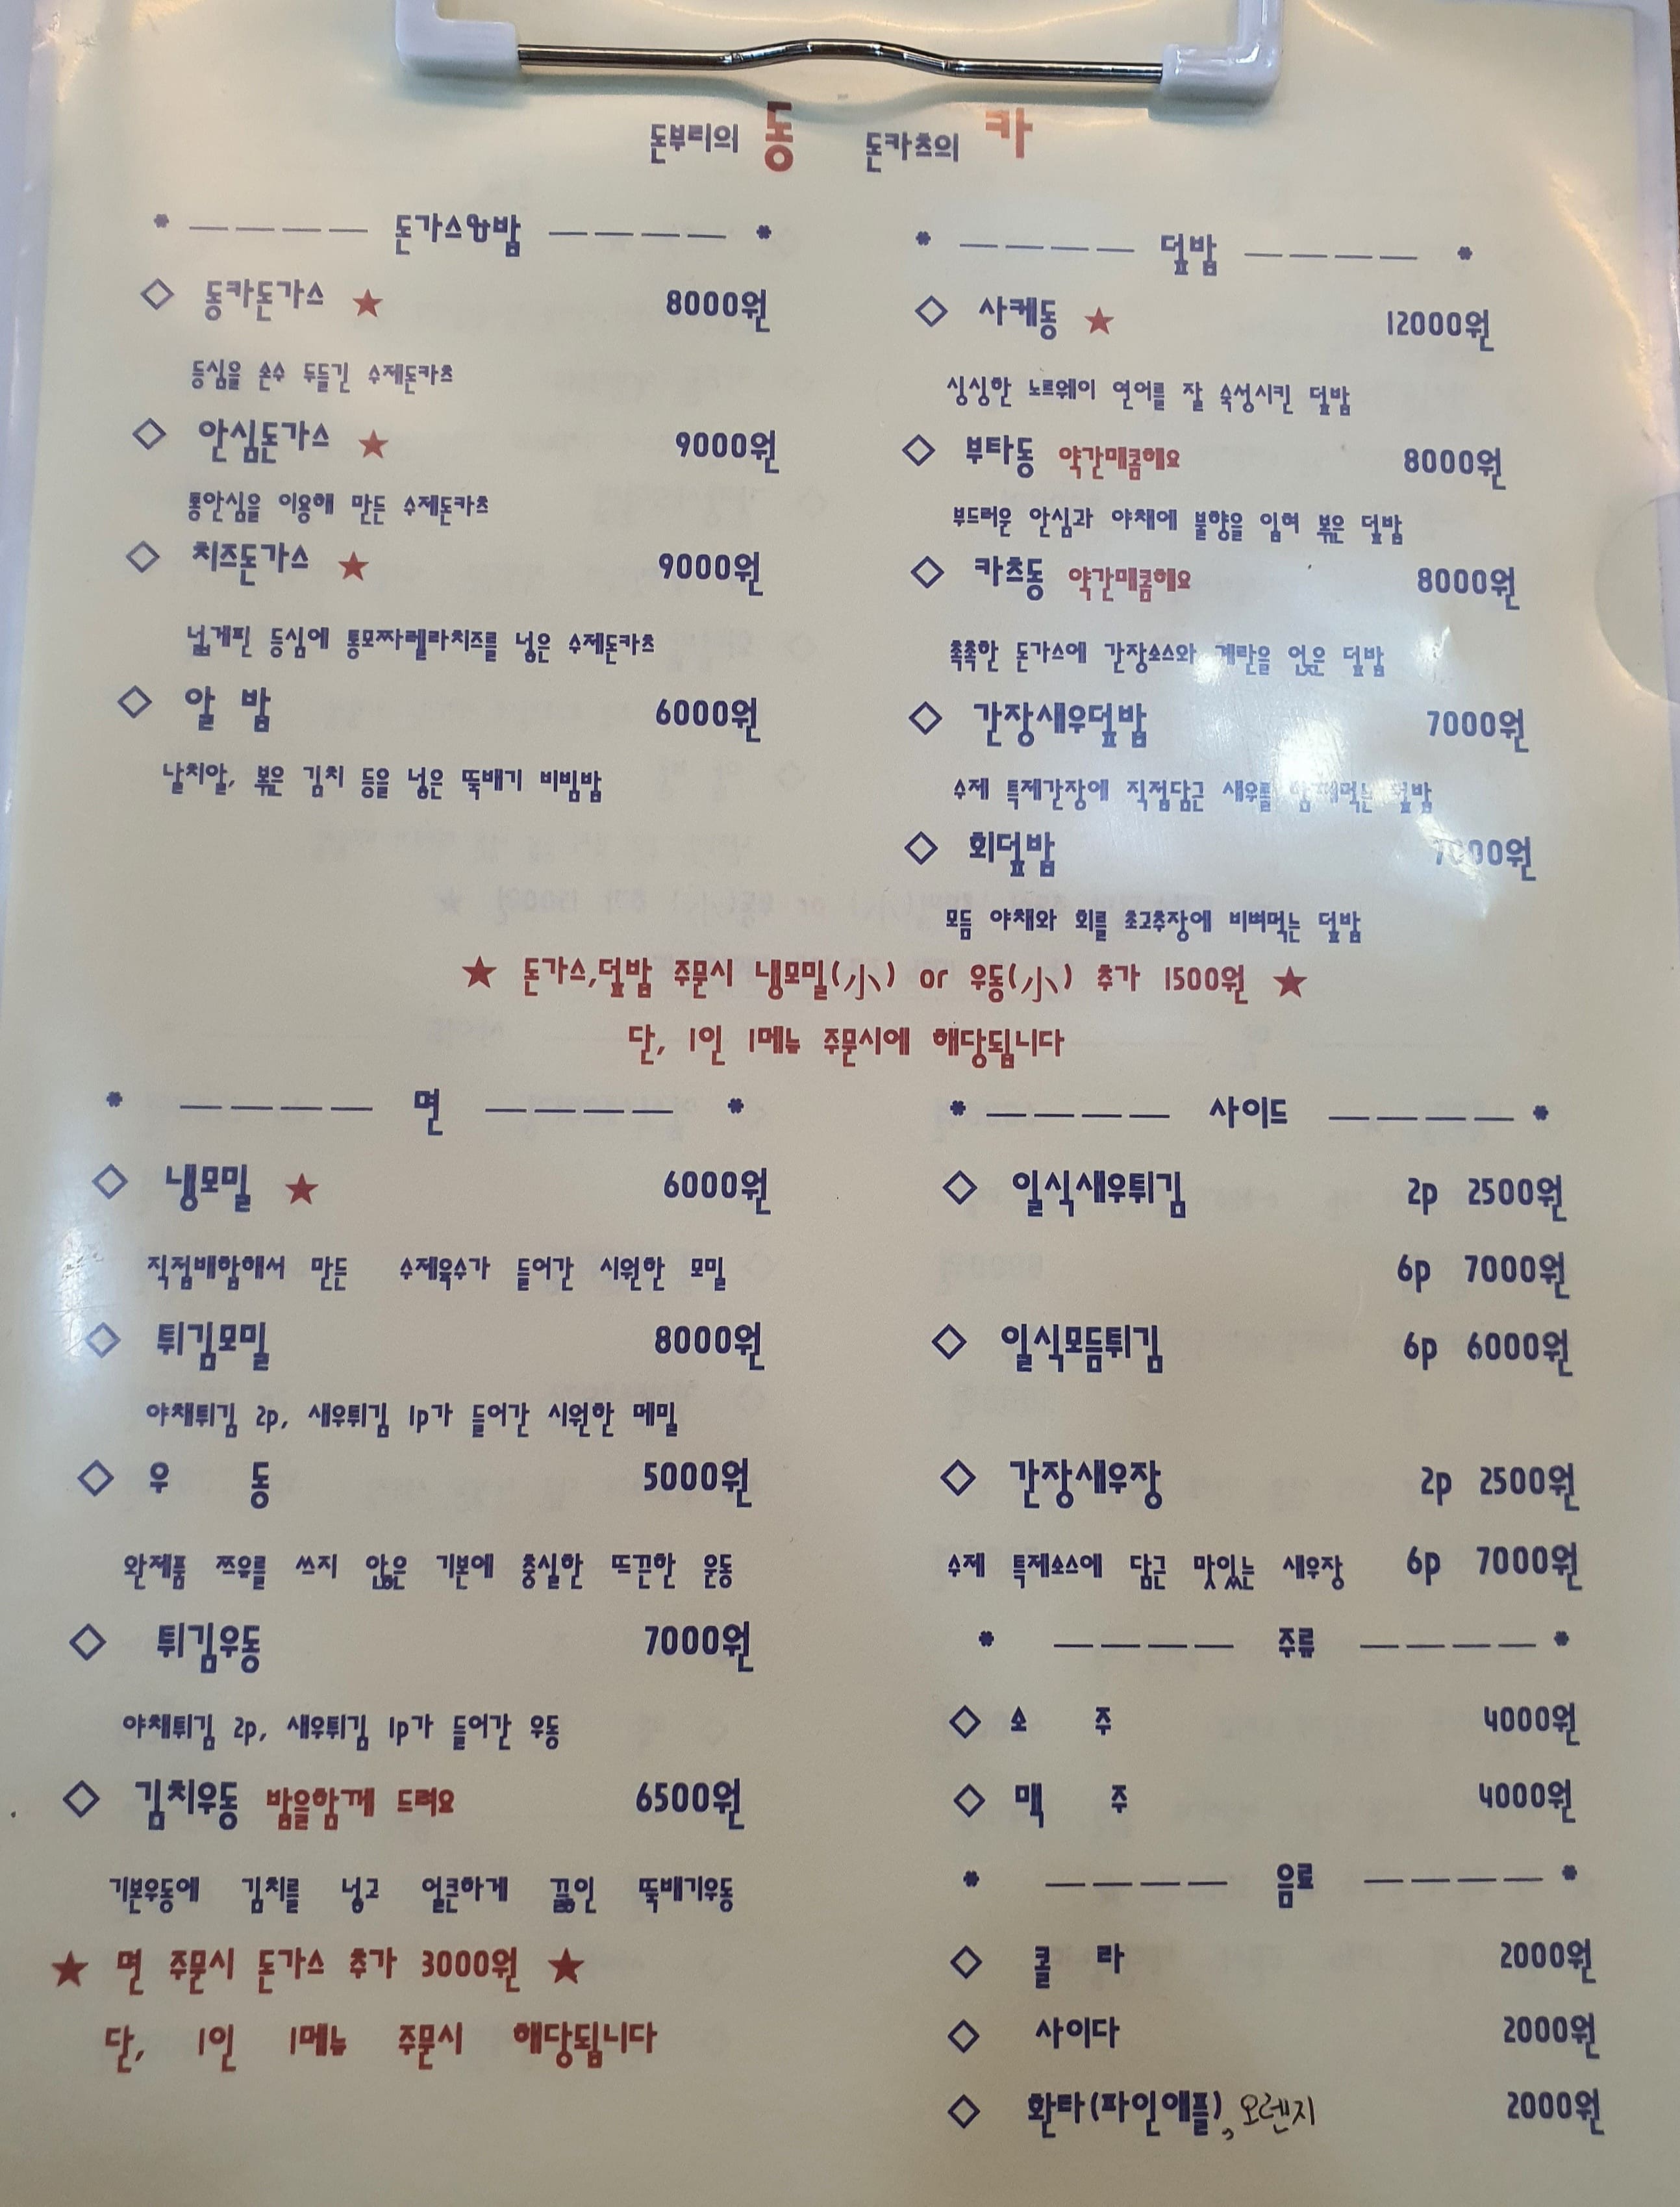 돈부리의 동 돈카츠의 카
돈가스&밥
동카돈가스 ★ 8000원
등심을 손수 두들긴 수제돈카츠
안심돈가스 ★ 9000원
통안심을 이용해 만든 수제돈카츠
치즈돈가스 ★ 9000원
넓게핀 등심에 통모짜렐라치즈를 넣은 수제돈카츠
알 밥 6000원
날치알, 볶은 김치 등을 넣은 뚝배기 비빔밥
덮밥
사케동 ★ 12000원
싱싱한 노르웨이 연어를 잘 숙성시킨 덮밥
부타동 약간매콤해요 8000원
부드러운 안심과 야채에 불향을 입혀 볶은 덮밥
카츠동 약간매콤해요 8000원
촉촉한 돈가스에 간장소스와 계란을 얹은 덮밥
간장새우덮밥 7000원
수제 특제간장에 직접담근 새우를 함께먹는 덮밥
회덮밥 7000원
모듬 야채와 회를 초고추장에 비벼먹는 덮밥
★ 돈가스,덮밥 주문시 냉모밀(小) or 우동(小) 추가 1500원 ★
단, 1인 1메뉴 주문시에 해당됩니다
면
냉모밀 ★ 6000원
직접배합해서 만든 수제육수가 들어간 시원한 모밀
튀김모밀 8000원
야채튀김 2p, 새우튀김 1p가 들어간 시원한 메밀
우 동 5000원
완제품 쯔유를 쓰지 않은 기본에 충실한 뜨끈한 운동
튀김우동 7000원
야채튀김 2p, 새우튀김 1p가 들어간 우동
김치우동 밥을함께 드려요 6500원
기본우동에 김치를 넣고 얼큰하게 끓인 뚝배기우동
★ 면 주문시 돈가스 추가 3000원 ★
단, 1인 1메뉴 주문시 해당됩니다
사이드
일식새우튀김 2p 2500원
6p 7000원
일식모듬튀김 6p 6000원
간장새우장 2p 2500원
수제 특제소스에 담근 맛있는 새우장 6p 7000원
주류
소 주 4000원
맥 주 4000원
음료
콜 라 2000원
사이다 2000원
환타(파인애플), 오렌지 2000원